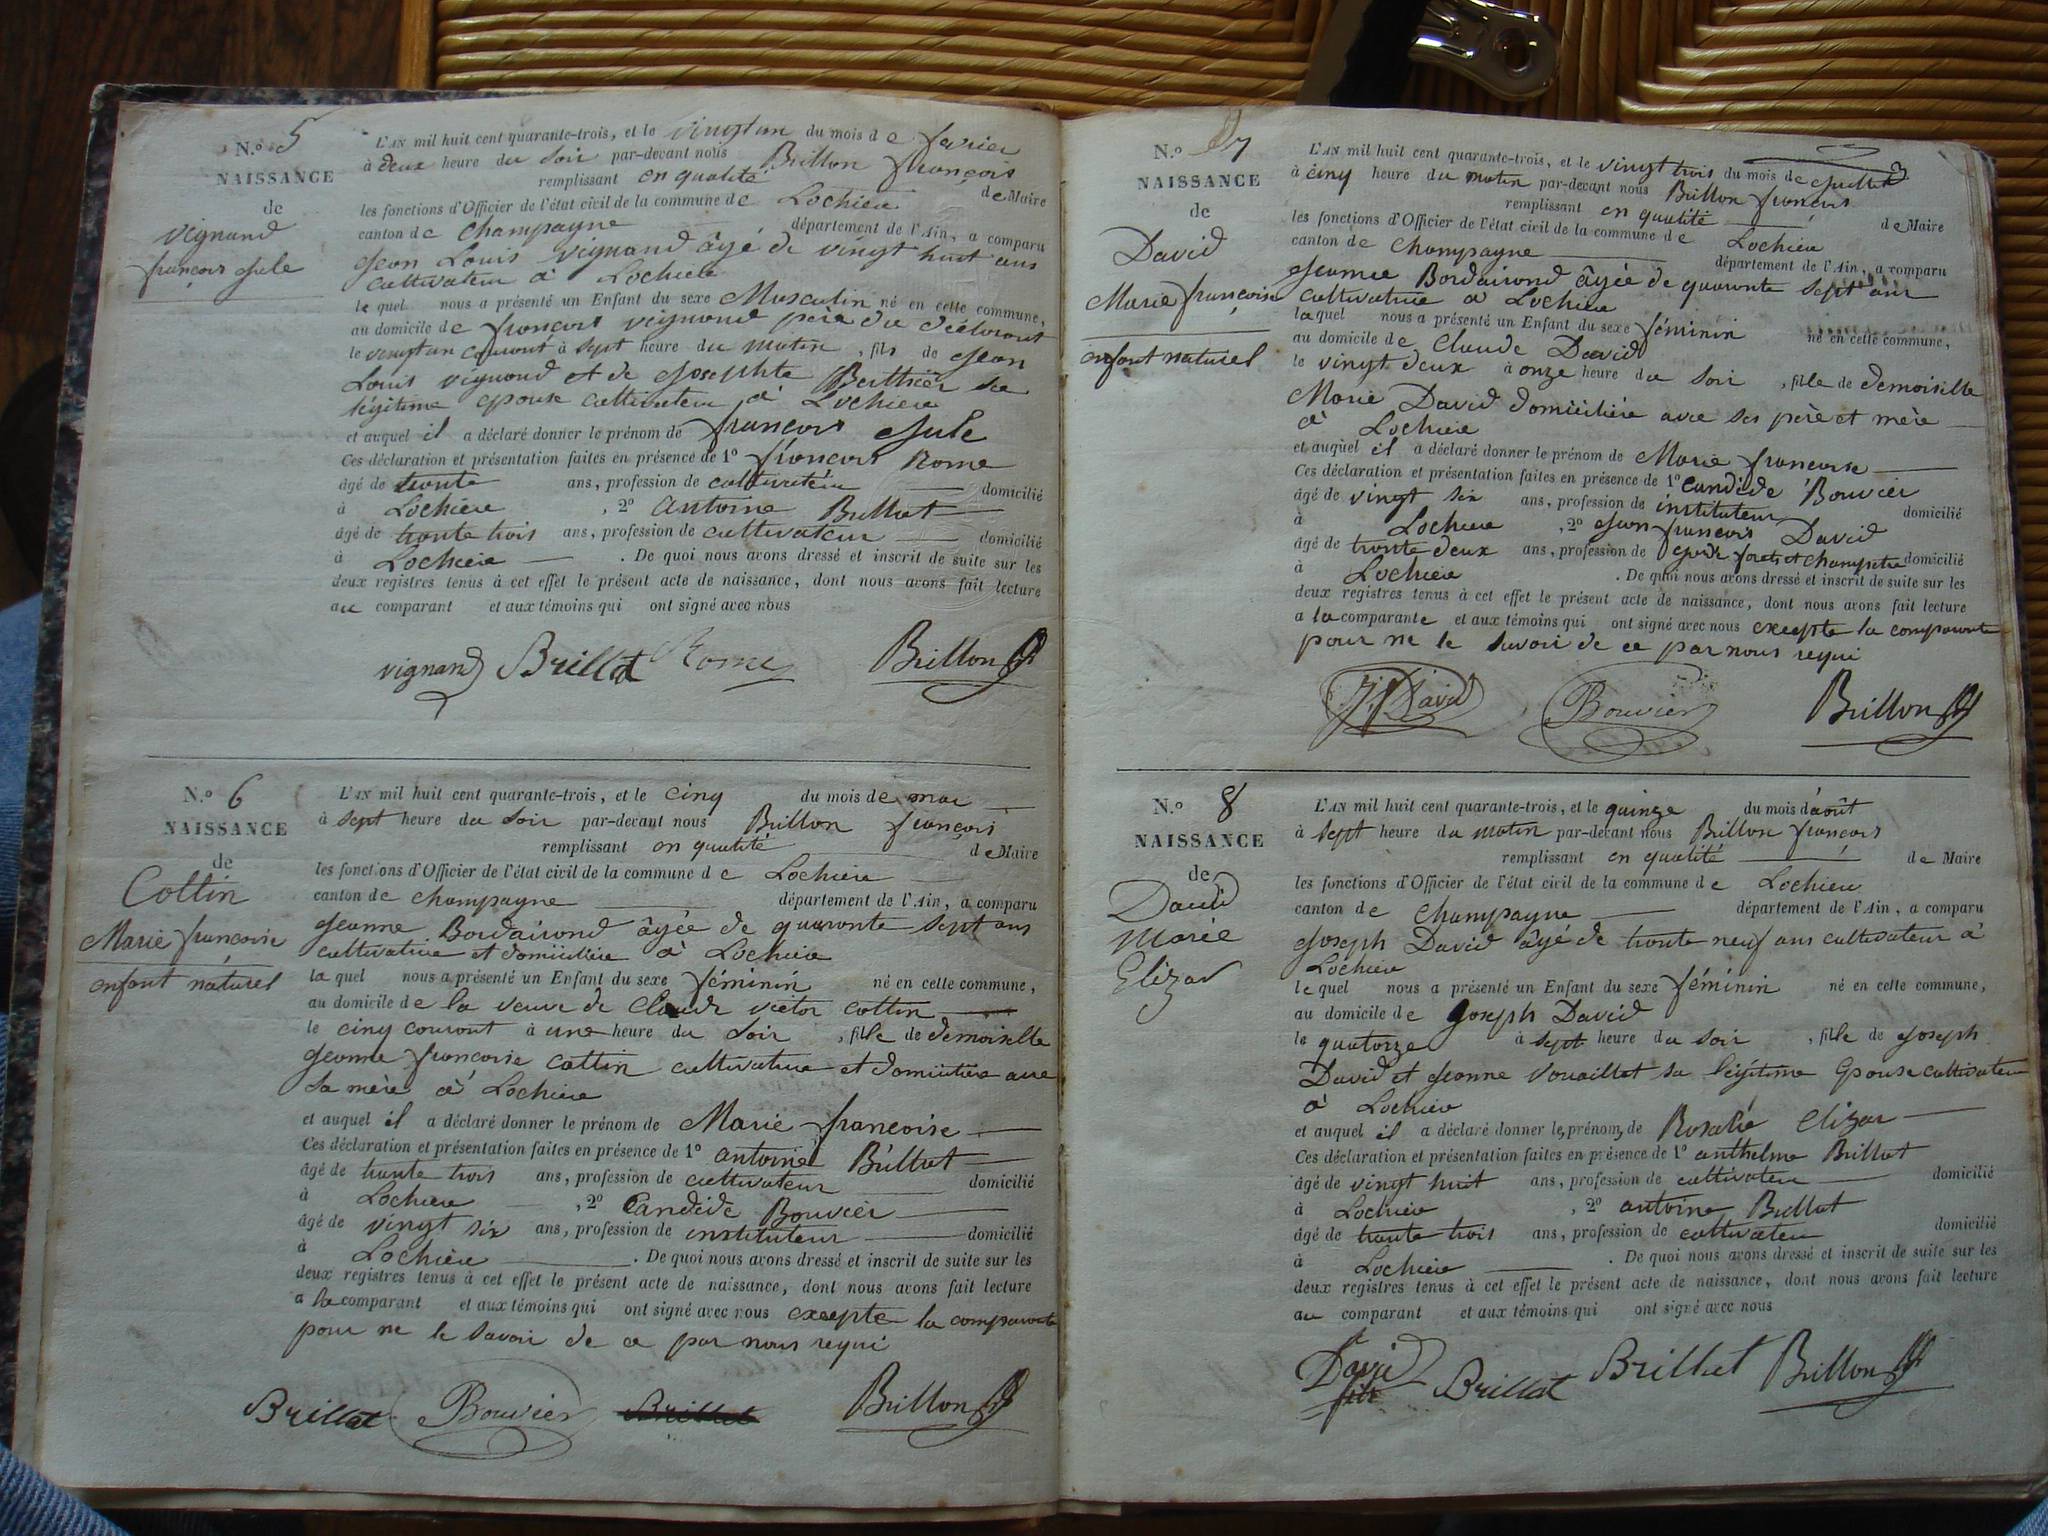 N.º 5
NAISSANCE
de
vignand
françois jule
L'AN mil huit cent quarante-trois, et le vingt un du mois de
à deux heure du soir par-devant nous Brillon françois
remplissant en qualité de Maire
les fonctions d'Officier de l'état civil de la commune de Lochieu
canton de champagne département de l'Ain, a comparu
jean Louis vignand âgé de vingt huit ans
cultivateur à Lochieu
le quel nous a présenté un Enfant du sexe Masculin né en cette commune,
au domicile de françois vignand père du déclarant
le vingt un courant à sept heure du matin, fils de jean
Louis vignand et de josephte Berthier sa
légitime epouse cultivateur à Lochieu
et auquel il a déclaré donner le prénom de françois jule
Ces déclaration et présentation faites en présence de 1º françois Rome
âgé de trente ans, profession de cultivateur domicilié
à Lochieu, 2º antoine Brillat
âgé de trente trois ans, profession de cultivateur domicilié
à Lochieu. De quoi nous avons dressé et inscrit de suite sur les
deux registres tenus à cet effet le présent acte de naissance, dont nous avons fait lecture
au comparant et aux témoins qui ont signé avec nous
vignand Brillat Rome Brillon
N.º 6
NAISSANCE
de
Cottin
Marie françoise
enfant naturel
L'AN mil huit cent quarante-trois, et le cinq du mois de mai
à sept heure du soir par-devant nous Brillon françois
remplissant en qualité de Maire
les fonctions d'Officier de l'état civil de la commune de Lochieu
canton de champagne département de l'Ain, a comparu
jeanne Bordairond âgée de quaronte sept ans
cultivatrice et domiciliée à Lochieu
la quel nous a présenté un Enfant du sexe féminin né en cette commune,
au domicile de la veuve de Claude victor cottin
le cinq courant à une heure du soir, fille de demoiselle
jeanne françoise cottin cultivatrice et domiciliée avec
sa mère à Lochieu
et auquel il a déclaré donner le prénom de Marie françoise
Ces déclaration et présentation faites en présence de 1º antoine Brillat
âgé de trente trois ans, profession de cultivateur domicilié
à Lochieu, 2º Candide Bouvier
âgé de vingt six ans, profession de instituteur domicilié
à Lochieu. De quoi nous avons dressé et inscrit de suite sur les
deux registres tenus à cet effet le présent acte de naissance, dont nous avons fait lecture
a la comparant et aux témoins qui ont signé avec nous excepte la comparante
pour ne le savoir de ce par nous requi
Brillat Bouvier Brillat Brillon
N.º 7
NAISSANCE
de
David
Marie françoise
enfant naturel
L'AN mil huit cent quarante-trois, et le vingt trois du mois de juillet
à cinq heure du matin par-devant nous Brillon françois
remplissant en qualité de Maire
les fonctions d'Officier de l'état civil de la commune de Lochieu
canton de champagne département de l'Ain, a comparu
jeanne Bordairond âgée de quaronte sept ans
cultivatrice à Lochieu
la quel nous a présenté un Enfant du sexe féminin né en cette commune,
au domicile de Claude David
le vingt deux à onze heure du soir, fille de demoiselle
Marie David domiciliée avec ses père et mère
à Lochieu
et auquel il a déclaré donner le prénom de Marie francoise
Ces déclaration et présentation faites en présence de 1º Candide Bouvier
âgé de vingt six ans, profession de instituteur domicilié
à Lochieu, 2º jean françois David
âgé de trente deux ans, profession de garde foret et champetre domicilié
à Lochieu. De quoi nous avons dressé et inscrit de suite sur les
deux registres tenus à cet effet le présent acte de naissance, dont nous avons fait lecture
a la comparante et aux témoins qui ont signé avec nous excepte la comparante
pour ne le savoir de ce par nous requi
David Bouvier Brillon
N.º 8
NAISSANCE
de
David
Marie
Elizar
L'AN mil huit cent quarante-trois, et le quinze du mois d'août
à sept heure du matin par-devant nous Brillon françois
remplissant en qualité de Maire
les fonctions d'Officier de l'état civil de la commune de Lochieu
canton de Champagne département de l'Ain, a comparu
joseph David âgé de trente neuf ans cultivateur à
Lochieu
le quel nous a présenté un Enfant du sexe féminin né en cette commune,
au domicile de joseph David
le quatorze à sept heure du soir, fille de joseph
David et jeanne vouaillat sa légitime Epouse cultivateur
à Lochieu
et auquel il a déclaré donner le prénom de Rosalie Elizar
Ces déclaration et présentation faites en présence de 1º anthelme Brillat
âgé de vingt huit ans, profession de cultivateur domicilié
à Lochieu, 2º antoine Brillat
âgé de trente trois ans, profession de cultivateur domicilié
à Lochieu. De quoi nous avons dressé et inscrit de suite sur les
deux registres tenus à cet effet le présent acte de naissance, dont nous avons fait lecture
au comparant et aux témoins qui ont signé avec nous
David Brillat Brillat Brillon